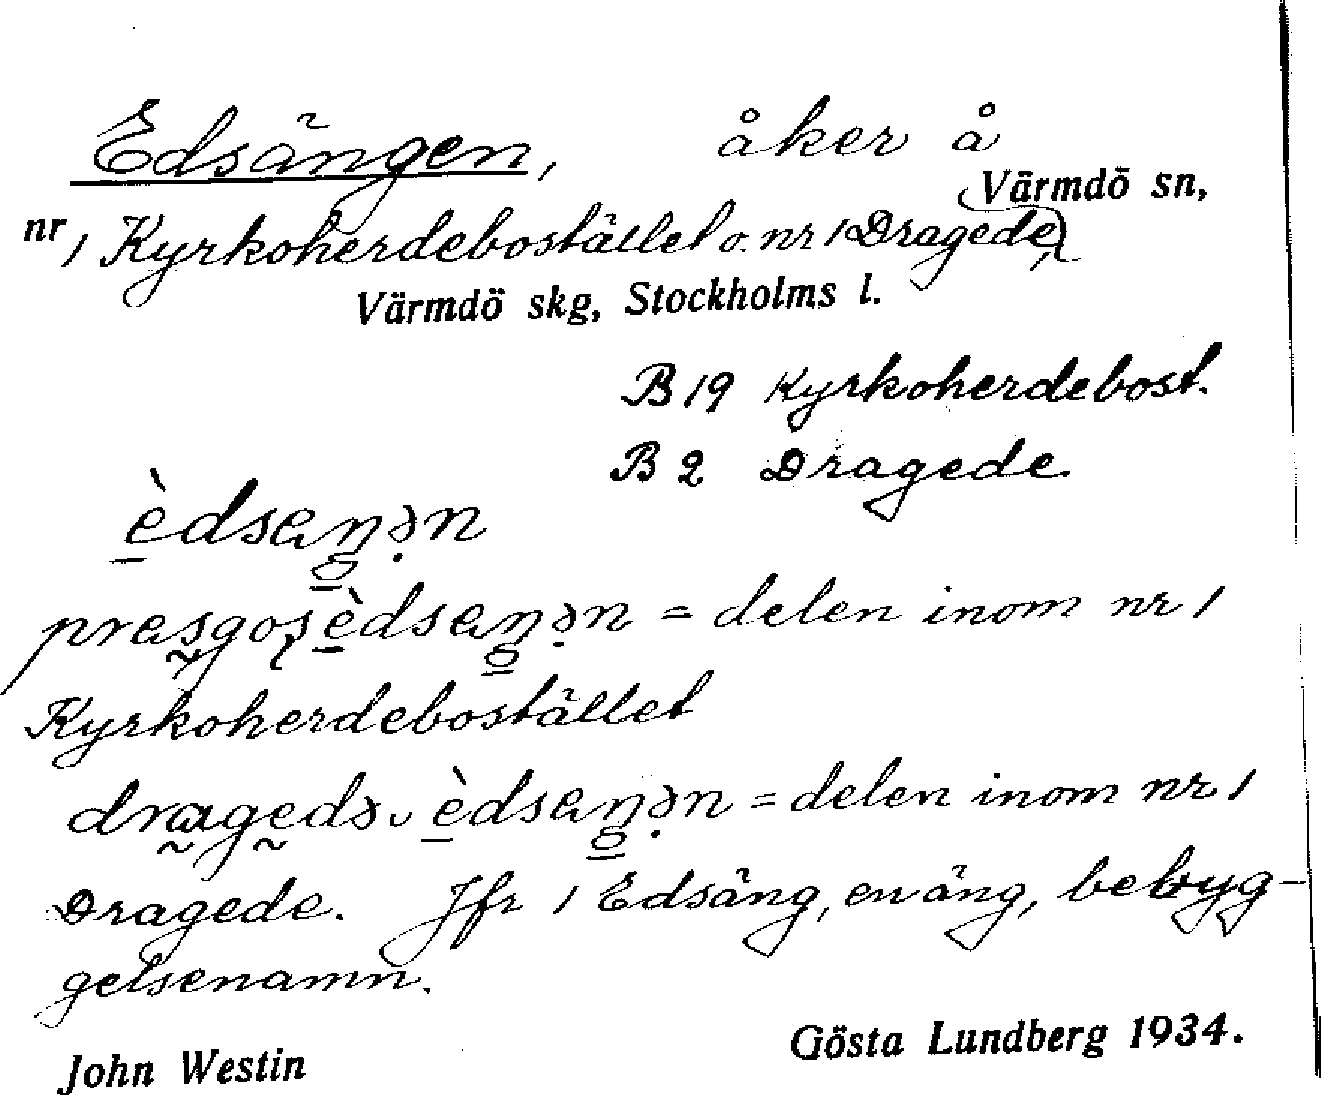 Edsängen, åker å
Värmdö sn,
nr 1 Kyrkoherdebostället o. nr 1 Dragede,
Värmdö skg, Stockholms l.
B 19 Kyrkoherdebost.
B 2 Dragede
èdsaŋən
èdsaŋən = delen inom nr 1
Kyrkoherdebostället
èdsaŋən = delen inom nr 1
Dragede. Jfr 1 Edsäng, en äng, bebyg-
gelsenamn.
John Westin Gösta Lundberg 1934.